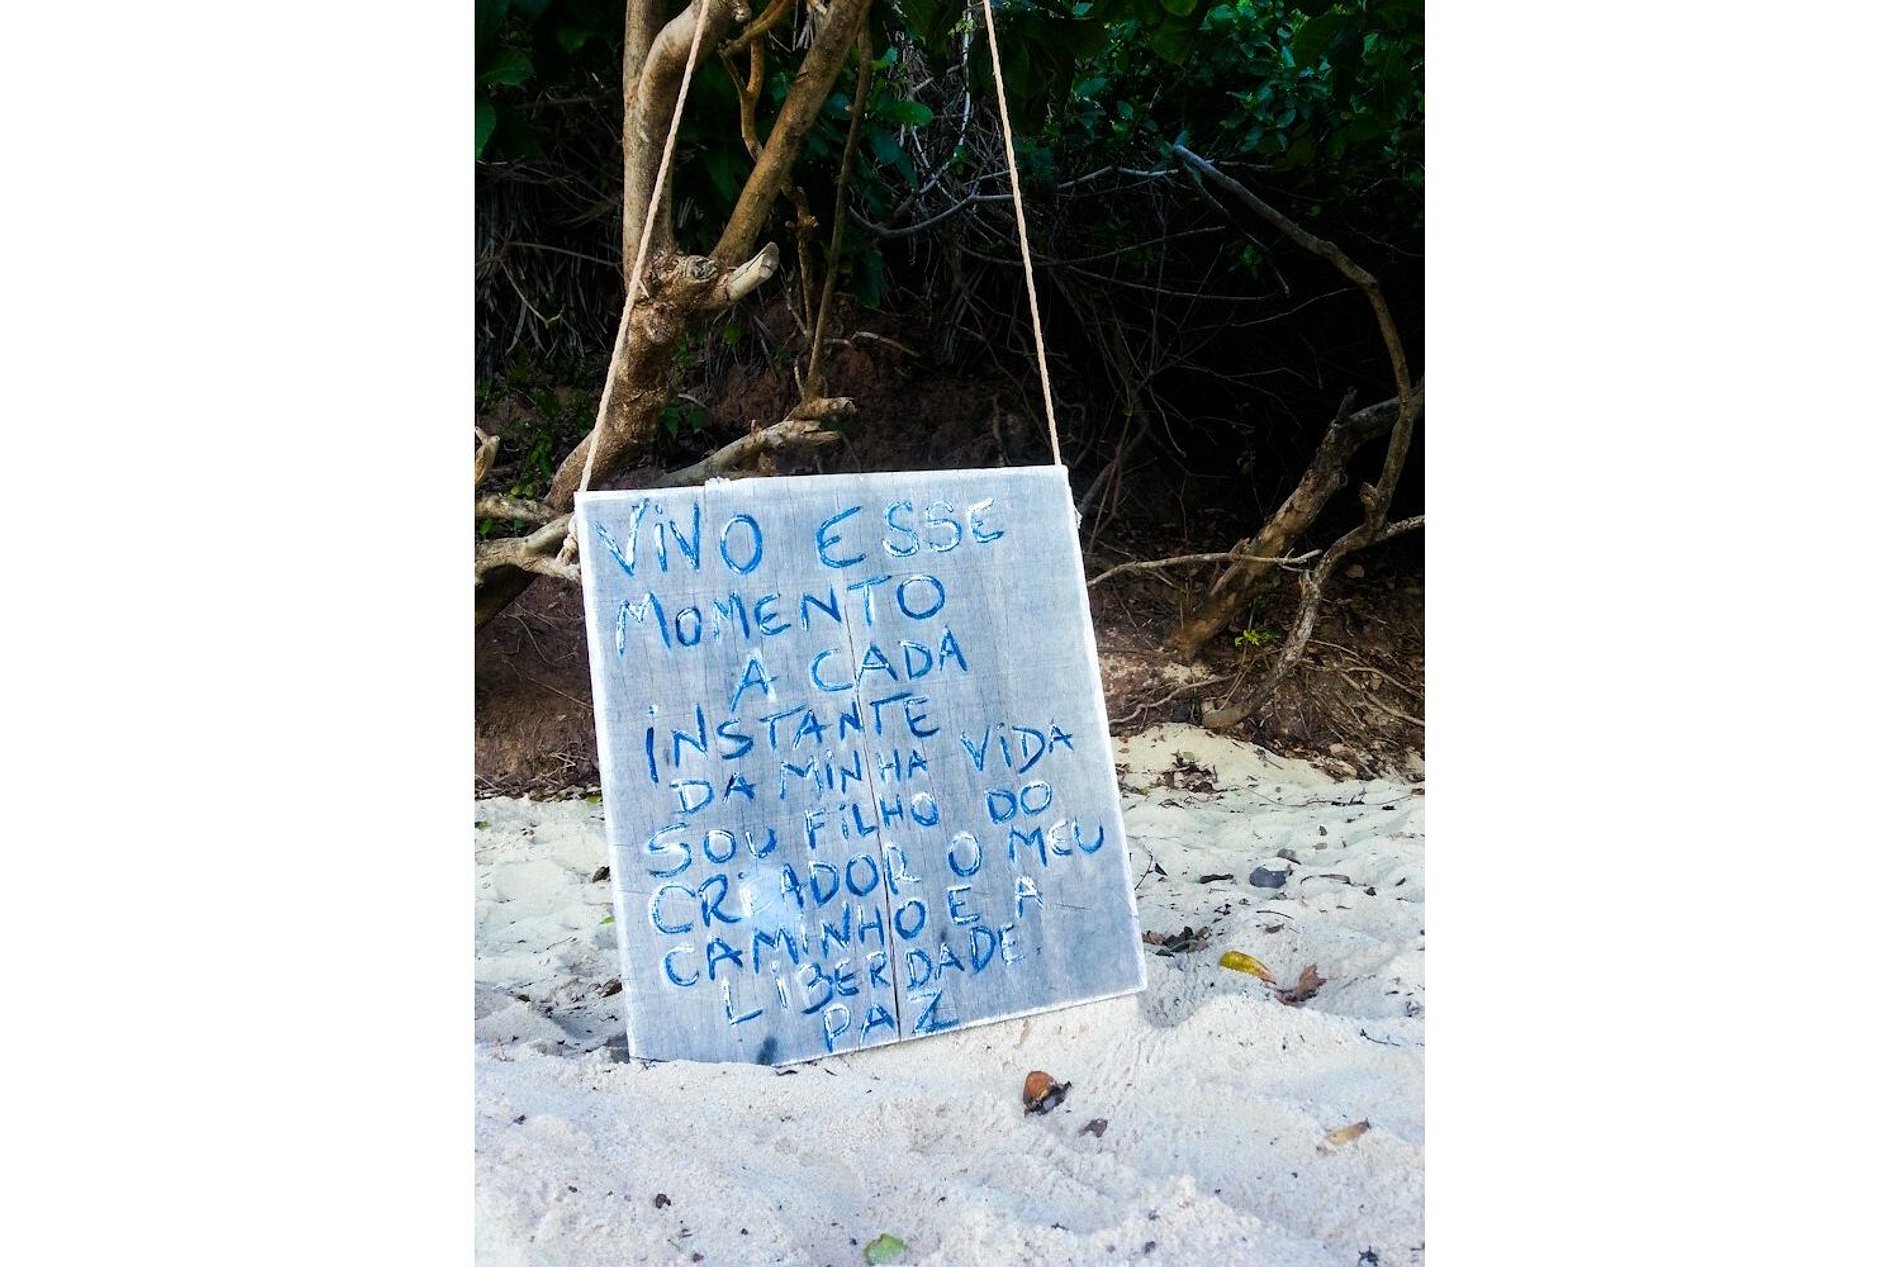 ViVO ESSE
MOMENTO
A CADA
iNSTANTE
DA MiNHA ViDA
SOU FiLHO DO
CRiADOR O MEU
CAMiNHO E A
LiBERDADE
PAZ